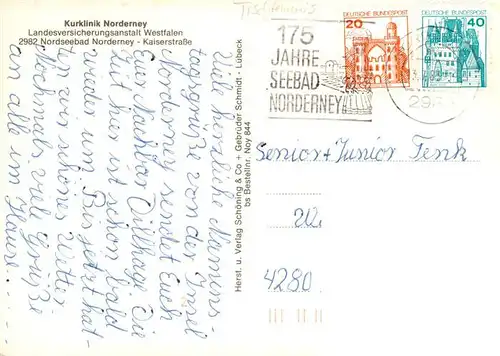 Tischhaus
Kurklinik Norderney
Landesversicherungsanstalt Westfalen
2982 Nordseebad Norderney - Kaiserstraße
175
JAHRE
SEEBAD
NORDERNEY
20
DEUTSCHE BUNDESPOST
40
DEUTSCHE BUNDESPOST
Viele herzliche Namens-
tagsgrüße von der Insel
Norderney sendet Euch
Euer Nachbar Dillhage. Die
Zeit hier ist schon bald
wieder um. Bis jetzt hat-
ten wir schönes Wetter
Nochmals viele Grüße
an alle im Hause....
Herst. u. Verlag Schöning & Co + Gebrüder Schmidt · Lübeck
bs Bestellnr. Noy 844
Senior + Junior Tenk
4280